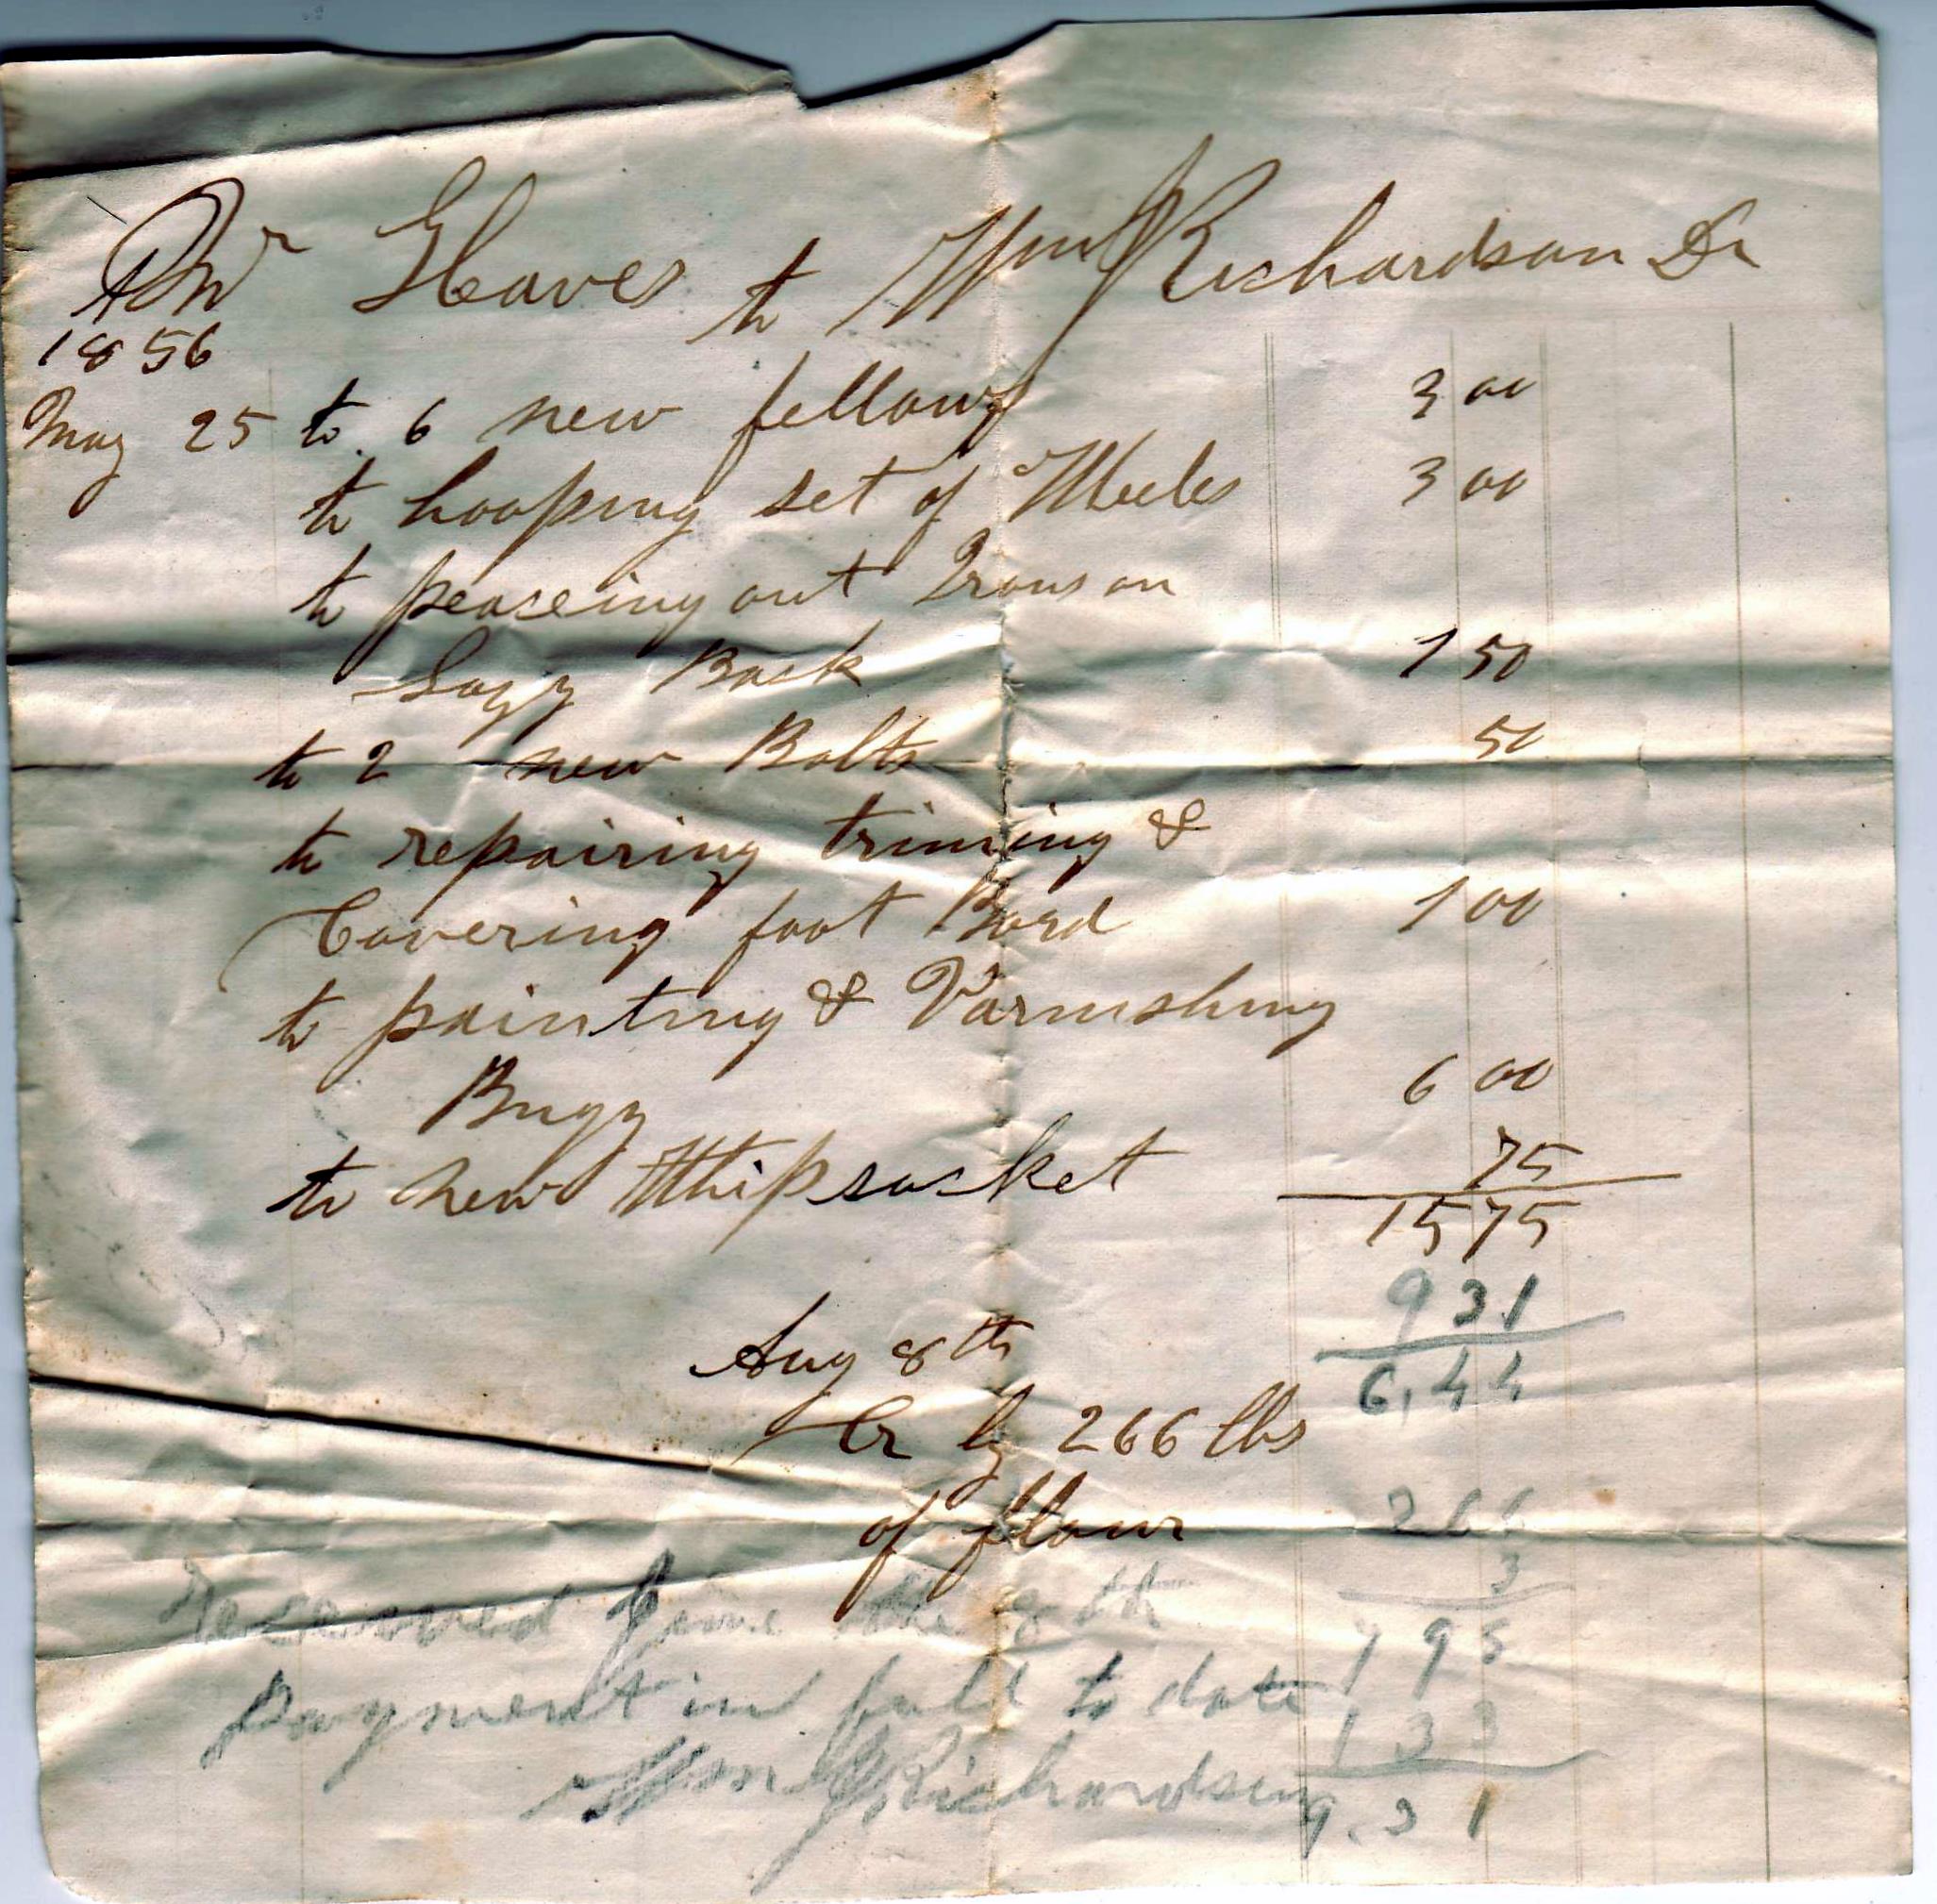 Mr Heaves to Wm Richardson Dr
1856
May 25 to 6 new fellows 3 00
to hooping set of Wheeles 3 00
to peaseing out Irons on
Lazy Back 1 50
to 2 new Bolts 50
to repairing triming &
Covering foot Bord 1 00
to painting & Varnishing
Bugy 6 00
to new Whip socket 75
15 75
9 31
6,44
Aug 8th
Cr by 266 lbs
of flour
266
3
798
133
9.31
Received June the 9th
payment in full to date
Wm Richardson